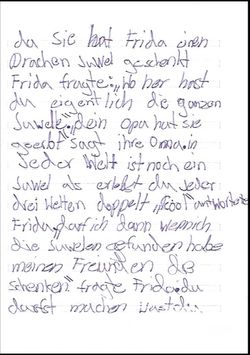 du Sie hat Frida einen
Drachen Juwel geschenkt
Frida fragte:„Wo her hast
du eigentlich die ganzen
Juwele" „dein Opa hat sie
geerbt" Sagt ihre Oma. in
Jeder Welt ist noch ein
Juwel als erbst du Jeder
drei Welten doppelt
Frida darf ich dann wenn ich
die Juwelen gefunden habe
meinen Freunden die
schenken" fragte Frida. du
darfst machen